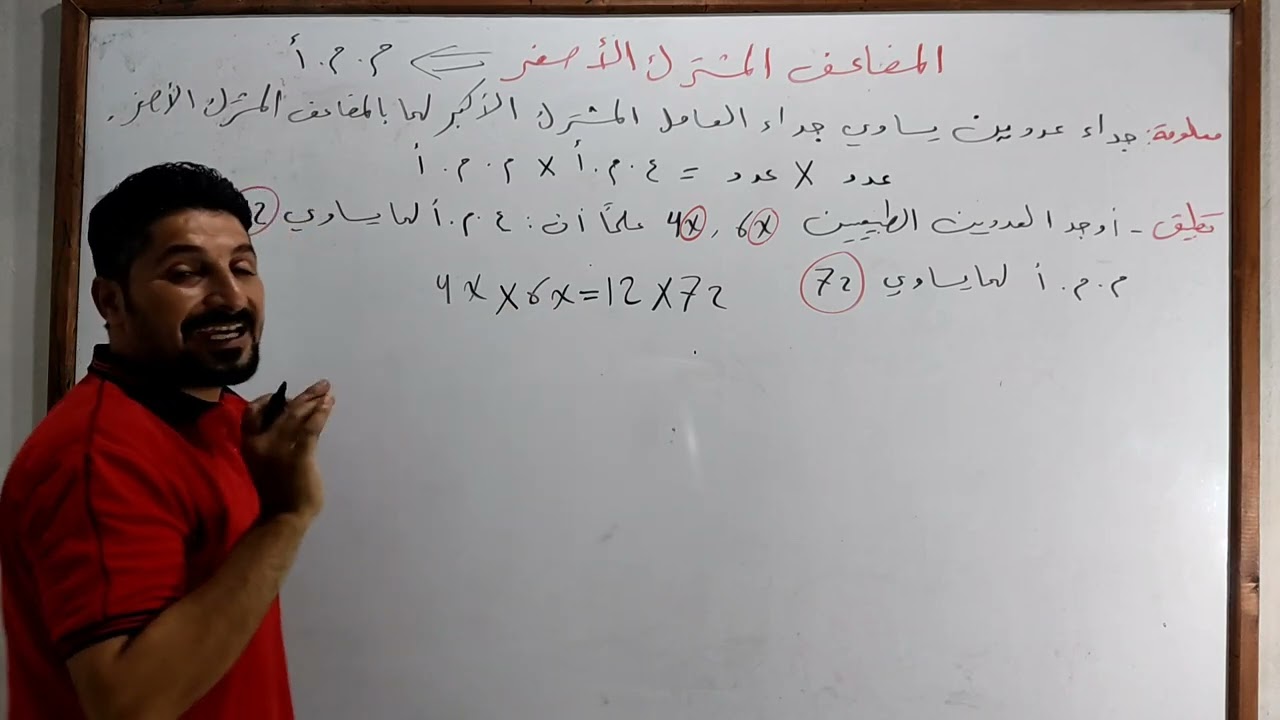 المضاعف المشترك الأصغر ⇐ م.م.أ
معلومة: جداء عددين يساوي جداء العامل المشترك الأكبر لهما بالمضاعف المشترك الأصغر.
عدد × عدد = ع.م.أ × م.م.أ
تطبيق - أوجد العددين الطبيعيين 4x , 6x علماً أن: ع.م.أ لهما يساوي 2
م.م.أ لهما يساوي 72
4x × 6x = 12 × 72